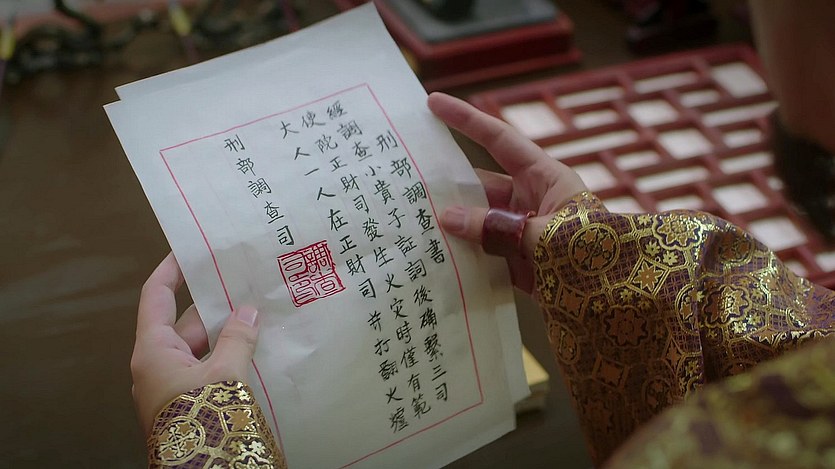 刑部調查書
經調查小貴子証詞後确繫三司
使院正財司發生火灾時僅有範
大人一人在正財司并打翻火
刑部調查司
調查司印